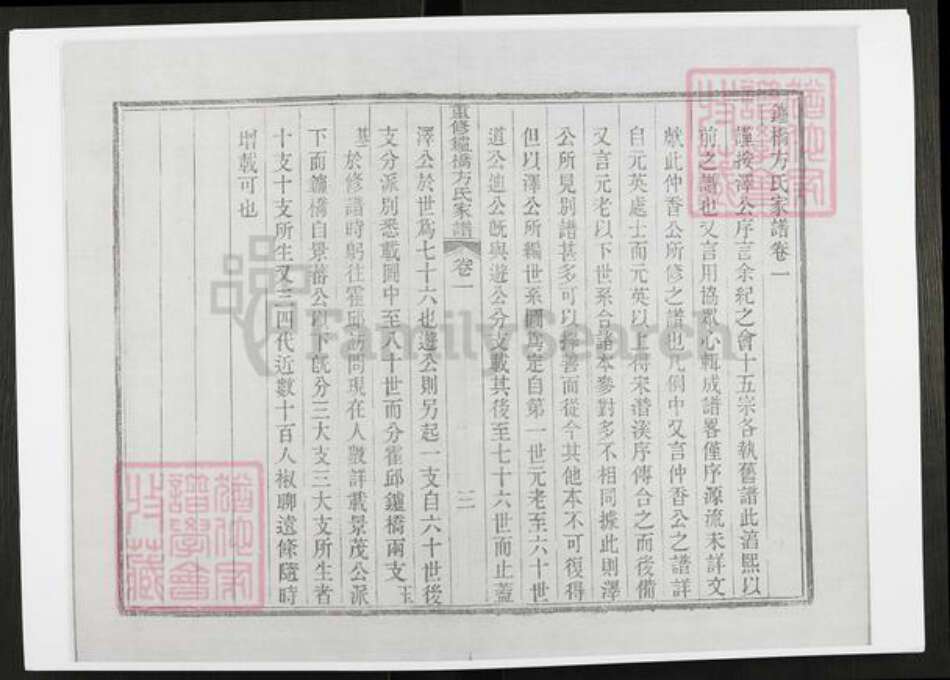 鑪橋方氏家譜卷一
謹按澤公序言余紀之會十五宗各執舊譜此湻熙以
前之譜也又言用協眾心輯成譜畧僅序源流未詳文
獻此仲香公所修之譜也凡例中又言仲香公之譜詳
自元英處士而元英以上得宋潛溪序傳合之而後備
又言元老以下世系合諸本參對多不相同據此則澤
公所見別譜甚多可以擇善而從今其他本不可復得
但以澤公所編世系圖為定自第一世元老至六十世
道公迪公旣與遊公分支載其後至七十六世而止蓋
重修鑪橋方氏家譜 卷一 二
澤公於世為七十六也遊公則另起一支自六十世後
支分派別悉載圖中至八十世而分霍邱鑪橋兩支玉
基於修譜時躬往霍邱訪問現在人數詳載景茂公派
下而鑪橋自景蕃公派下旣分三大支三大支所生者
十支十支所生又三四代近數十百人椒聊遠條隨時
增載可也
FamilySearch
譜學會
收藏